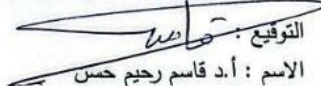 التوقيع :
الاسم : أ.د قاسم رحيم حسن